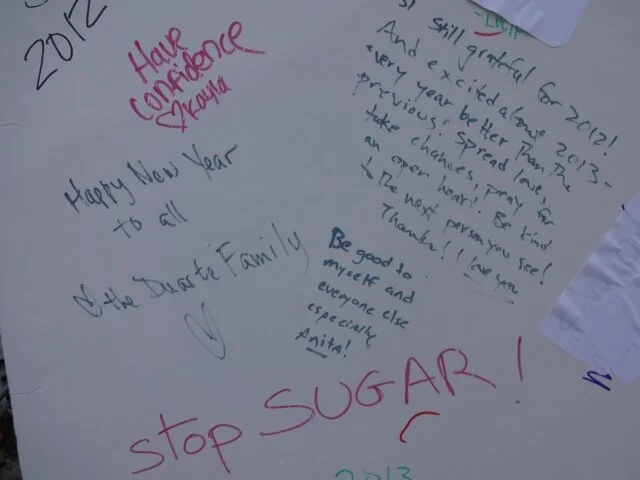 2012
Have
confidence
♡ Kayla
Happy New Year
to all
♡ the Duarte Family
♡
still grateful for 2012!
And excited about 2013-
every year better than the
previous. Spread love,
take chances, pray for
an open heart. Be kind
to the next person you see!
Thanks! I love you
Be good to
myself and
everyone else
especially
Anita!
stop SUGAR!
2013